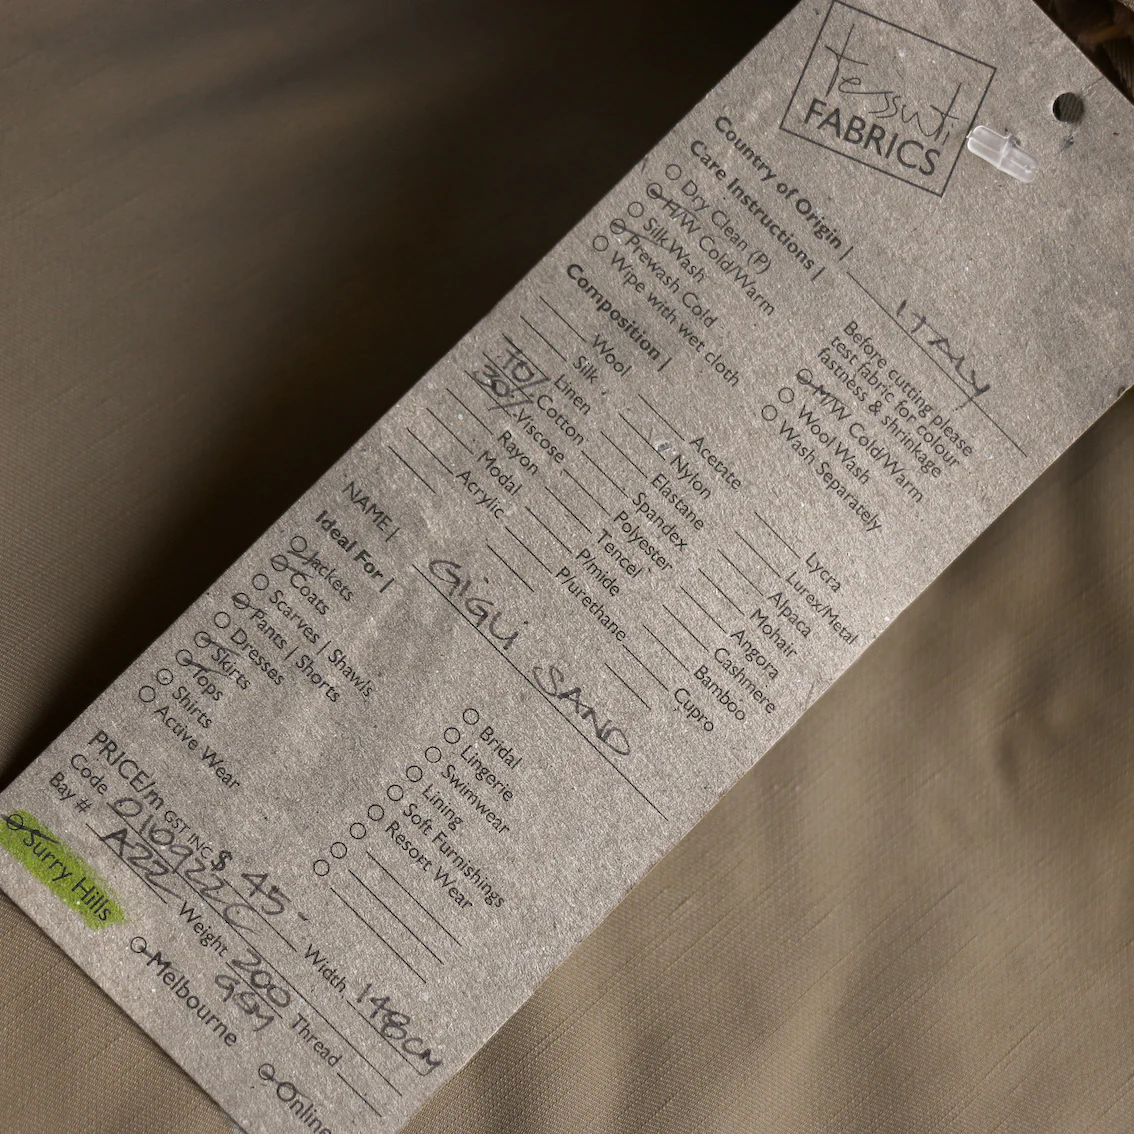 Tessuti
FABRICS
Country of Origin | ITALY
Care Instructions |
Dry Clean (P)
H/W Cold/Warm
Silk Wash
Prewash Cold
Wipe with wet cloth
Before cutting please
test fabric for colour
fastness & shrinkage
M/W Cold/Warm
Wool Wash
Wash Separately
Composition |
Wool
Silk
Linen
70/ Cotton
30% Viscose
Rayon
Modal
Acrylic
Acetate
Nylon
Elastane
Spandex
Polyester
Tencel
P/mide
P/urethane
Lycra
Lurex/Metal
Alpaca
Mohair
Angora
Cashmere
Bamboo
Cupro
NAME | GIGLI SAND
Ideal For |
Jackets
Coats
Scarves | Shawls
Pants | Shorts
Dresses
Skirts
Tops
Shirts
Active Wear
Bridal
Lingerie
Swimwear
Lining
Soft Furnishings
Resort Wear
PRICE/m GST INC $ 45-
Code 010922C Width 148cm
Bay # A22 Weight 200 GSM Thread
Surry Hills Melbourne Online